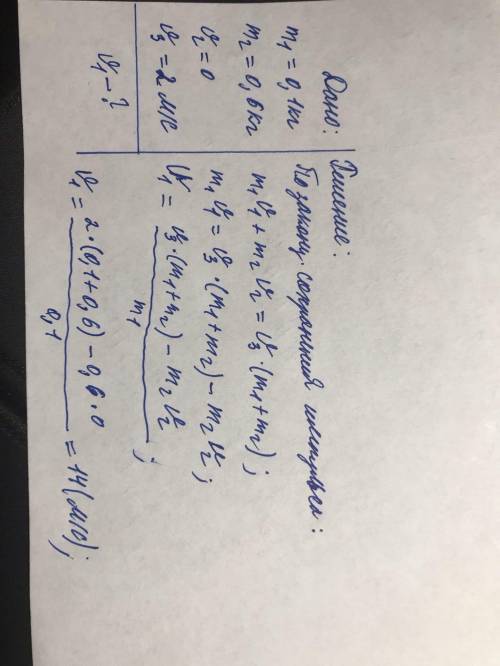 Дано:
m₁ = 0,1кг
m₂ = 0,6кг
v₂ = 0
v₃ = 2 м/с
v₁ - ?
Решение:
По закону сохранения импульса:
m₁v₁ + m₂v₂ = v₃·(m₁+m₂);
m₁v₁ = v₃·(m₁+m₂) - m₂v₂;
v₁ = v₃·(m₁+m₂) - m₂v₂ / m₁;
v₁ = 2·(0,1+0,6) - 0,6·0 / 0,1 = 14(м/с);